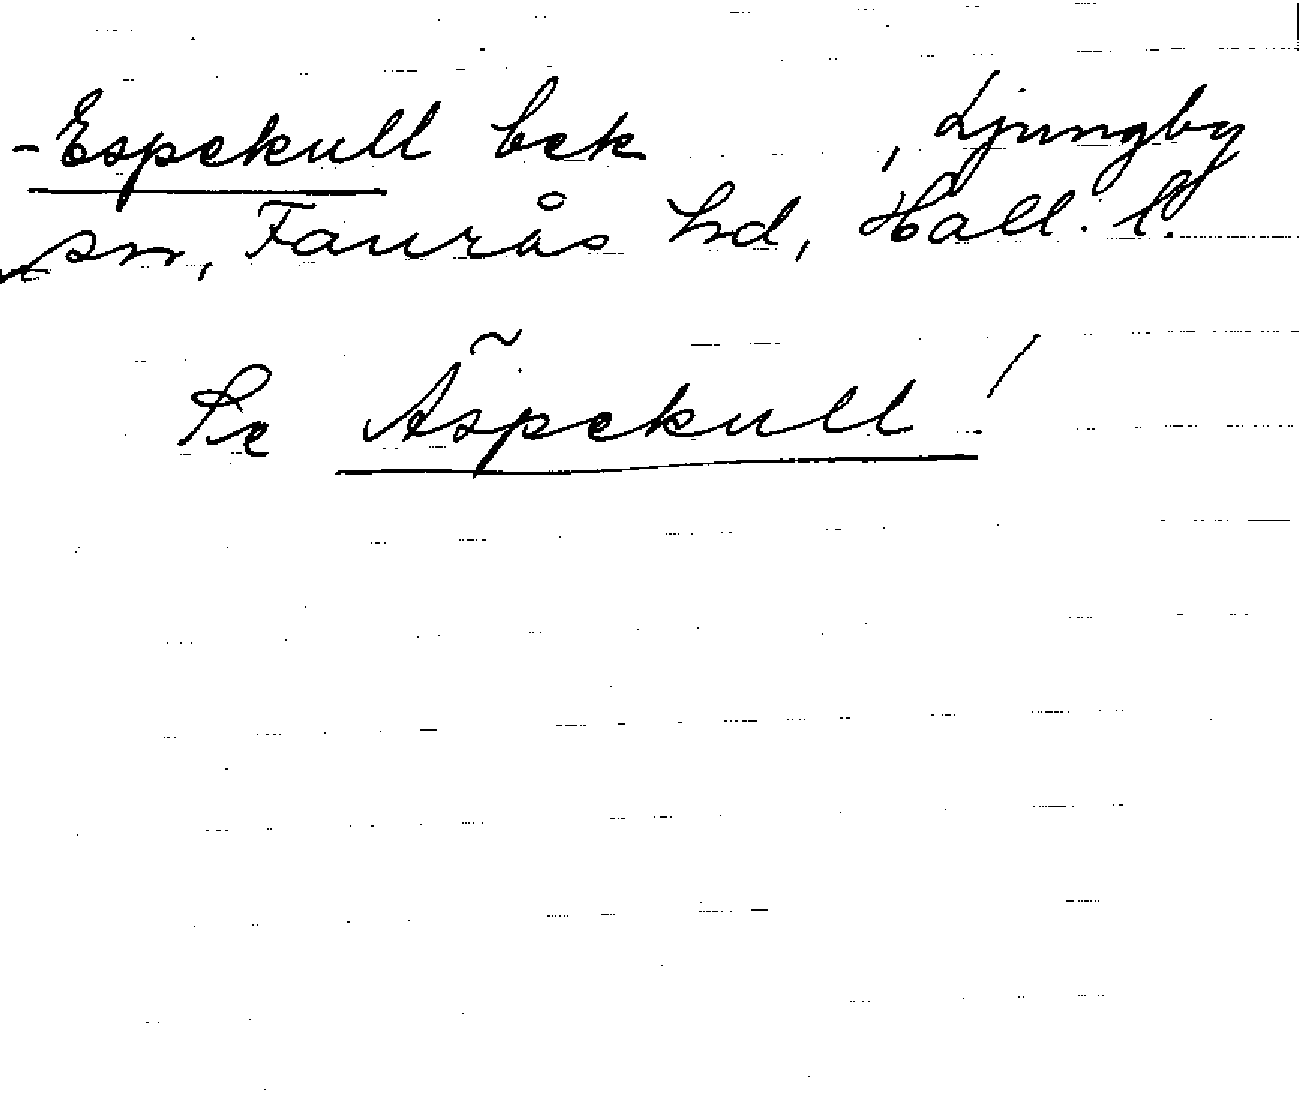 - Espekull bek , Ljungby
sn, Faurås hd, Hall. l.
Se Äspekull!